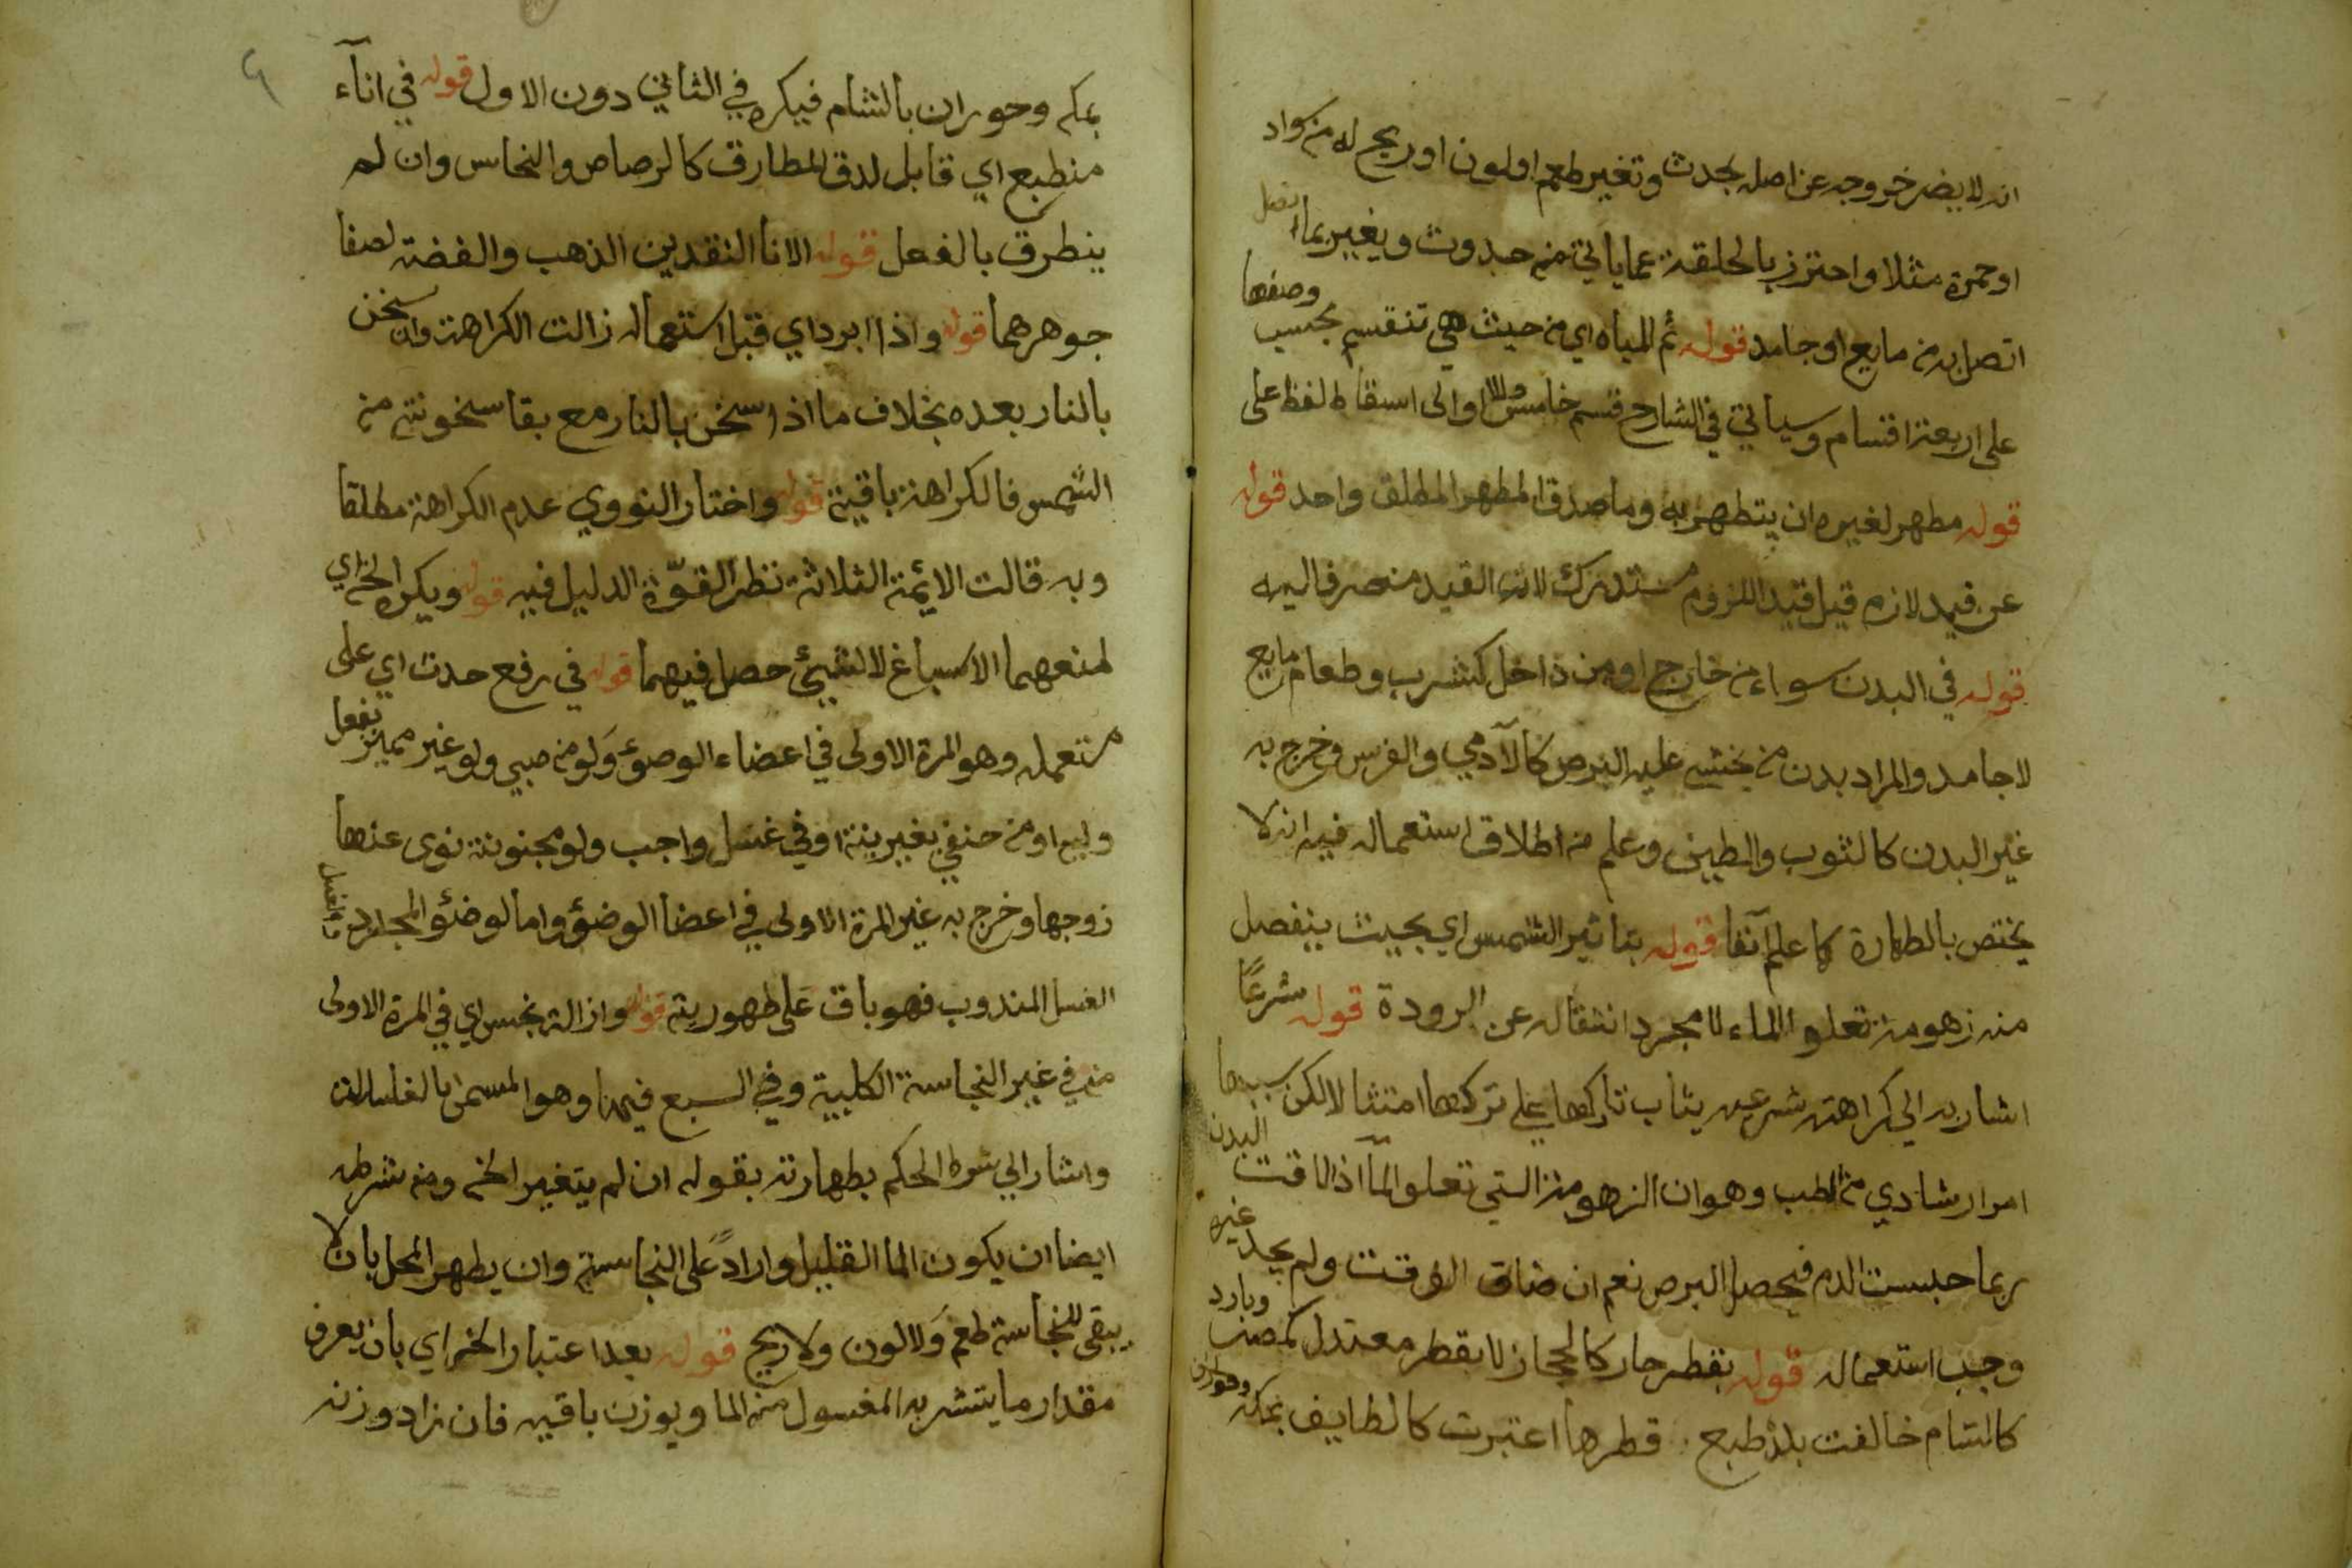 انه لا يضر خروجه عن اصله بحدث وتغير طعم اولون اوريح له من سواد
اوحمرة مثلا واحترز بالخلقة عما ياتي من حدوث ويغير بما اتصل
اتصل به من مايع اوجامد قوله ثم المياه اي من حيث هي تنقسم بحسب وصفها
على اربعة اقسام وسياتي في الشارح قسم خامس والاولى اسقاط لفظ على
قوله مطهر لغيره ان يتطهر به وماصدق المطهر المطلق واحد قوله
عن قيد لازم قيل قيد اللزوم مستدرك لان القيد منصرف اليه
قوله في البدن سواء من خارج اومن داخل كشرب وطعام مايع
لاجامد والمراد بدن من يخشى عليه البرص كالآدمي والفرس وخرج به
غير البدن كالثوب والطين وعلم من اطلاق استعماله فيه انه لا
يختص بالطهارة كما علم آنفا قوله بتاثير الشمس اي بحيث ينفصل
منه زهومة تعلو الماء لا مجرد انتقاله عن البرودة قوله شرعًا
اشار به الى كراهته شرعيه يثاب تاركها على تركها امتثالا لكن سببها
امر ارشادي من الطب وهو ان الزهومة التي تعلو المآ اذا لاقت البدن
ربما حبست الدم فيحصل البرص نعم ان ضاق الوقت ولم يجد غيره
وجب استعماله قوله بقطر حار كالحجاز لا بقطر معتدل كمصر وبارد
كالشام خالفت بلد طبع قطرها اعتبرت كالطايف بمكة وحوران
بمكه وحوران بالشام فيكره في الثاني دون الاول قوله في انآء
منطبع اي قابل لدق المطارق كالرصاص والنحاس وان لم
ينطرق بالفعل قوله الا انا النقدين الذهب والفضة لصفا
جوهرهما قوله واذا ابرد اي قبل استعماله زالت الكراهة وان سخن
بالنار بعده بخلاف ما اذا سخن بالنار مع بقا سخونته من
الشمس فالكراهة باقية قوله واختار النووي عدم الكراهة مطلقا
وبه قالت الائمة الثلاثة نظر القوّة الدليل فيه قوله ويكره الخ اي
لمنعهما الاسباغ لا لشيئ حصل فيهما قوله في رفع حدث اي على
مستعمله وهو المرة الاولى في اعضاء الوضوء ولو من صبي ولو غير مميز بفعل
وليه او من حنفي بغير نية اوفي غسل واجب ولو مجنونة نوى عنها
زوجها وخرج به غير المرة الاولى في اعضا الوضؤ واما الوضؤ المجدد والغسل
الغسل المندوب فهو باق على طهوريته قوله وازالة نجس اي في المرة الاولى
منه في غير النجاسة الكلبية وفي السبع فيها وهو المسمى بالغسالة
واشار الى شرط الحكم بطهارته بقوله ان لم يتغير الخ ومن شرطه
ايضا ان يكون الما القليل واردًا على النجاسة وان يطهر المحل بان لا
يبقى للنجاسة طعم ولا لون ولا ريح قوله بعد اعتبار الخ اي بان يعرف
مقدار ما يتشربه المغسول من الما ويوزن باقيه فان زاد وزنه